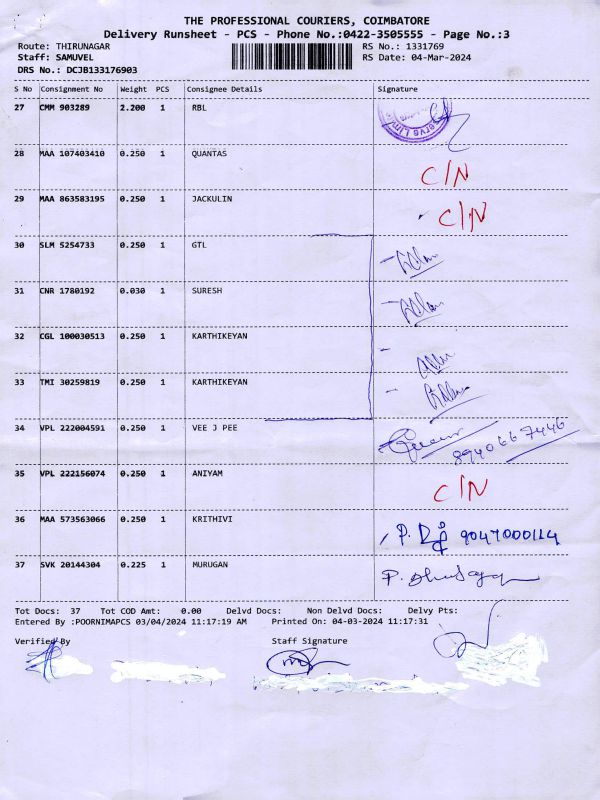 THE PROFESSIONAL COURIERS, COIMBATORE
Delivery Runsheet - PCS - Phone No.:0422-3505555 - Page No.:3
Route: THIRUNAGAR RS No.: 1331769
Staff: SAMUVEL RS Date: 04-Mar-2024
DRS No.: DCJB133176903
S No Consignment No Weight PCS Consignee Details Signature
27 CMM 903289 2.200 1 RBL
28 MAA 107403410 0.250 1 QUANTAS C/N
29 MAA 863583195 0.250 1 JACKULIN C/N
30 SLM 5254733 0.250 1 GTL
31 CNR 1780192 0.030 1 SURESH
32 CGL 100030513 0.250 1 KARTHIKEYAN
33 TMI 30259819 0.250 1 KARTHIKEYAN
34 VPL 222004591 0.250 1 VEE J PEE 8940667446
35 VPL 222156074 0.250 1 ANIYAM C/N
36 MAA 573563066 0.250 1 KRITHIVI 9047000114
37 SVK 20144304 0.225 1 MURUGAN
Tot Docs: 37 Tot COD Amt: 0.00 Delvd Docs: Non Delvd Docs: Delvy Pts:
Entered By :POORNIMAPCS 03/04/2024 11:17:19 AM Printed On: 04-03-2024 11:17:31
Verified By Staff Signature